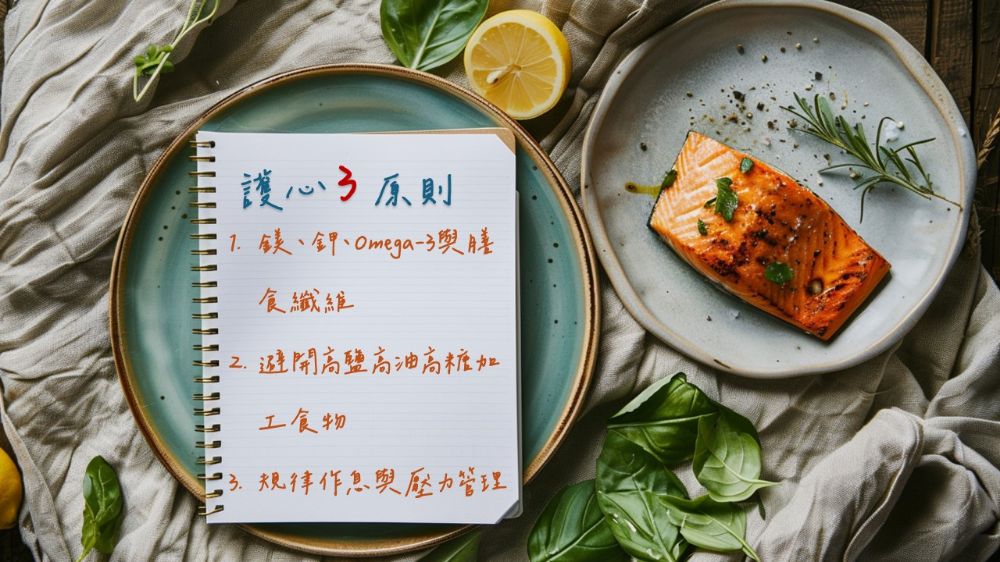 護心3原則
1. 鎂、鉀、Omega-3與膳
食纖維
2. 避開高鹽高油高糖加
工食物
3. 規律作息與壓力管理